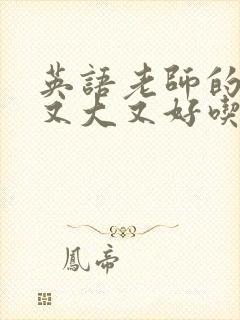 英語老師的
又大又好喫
鳳帝